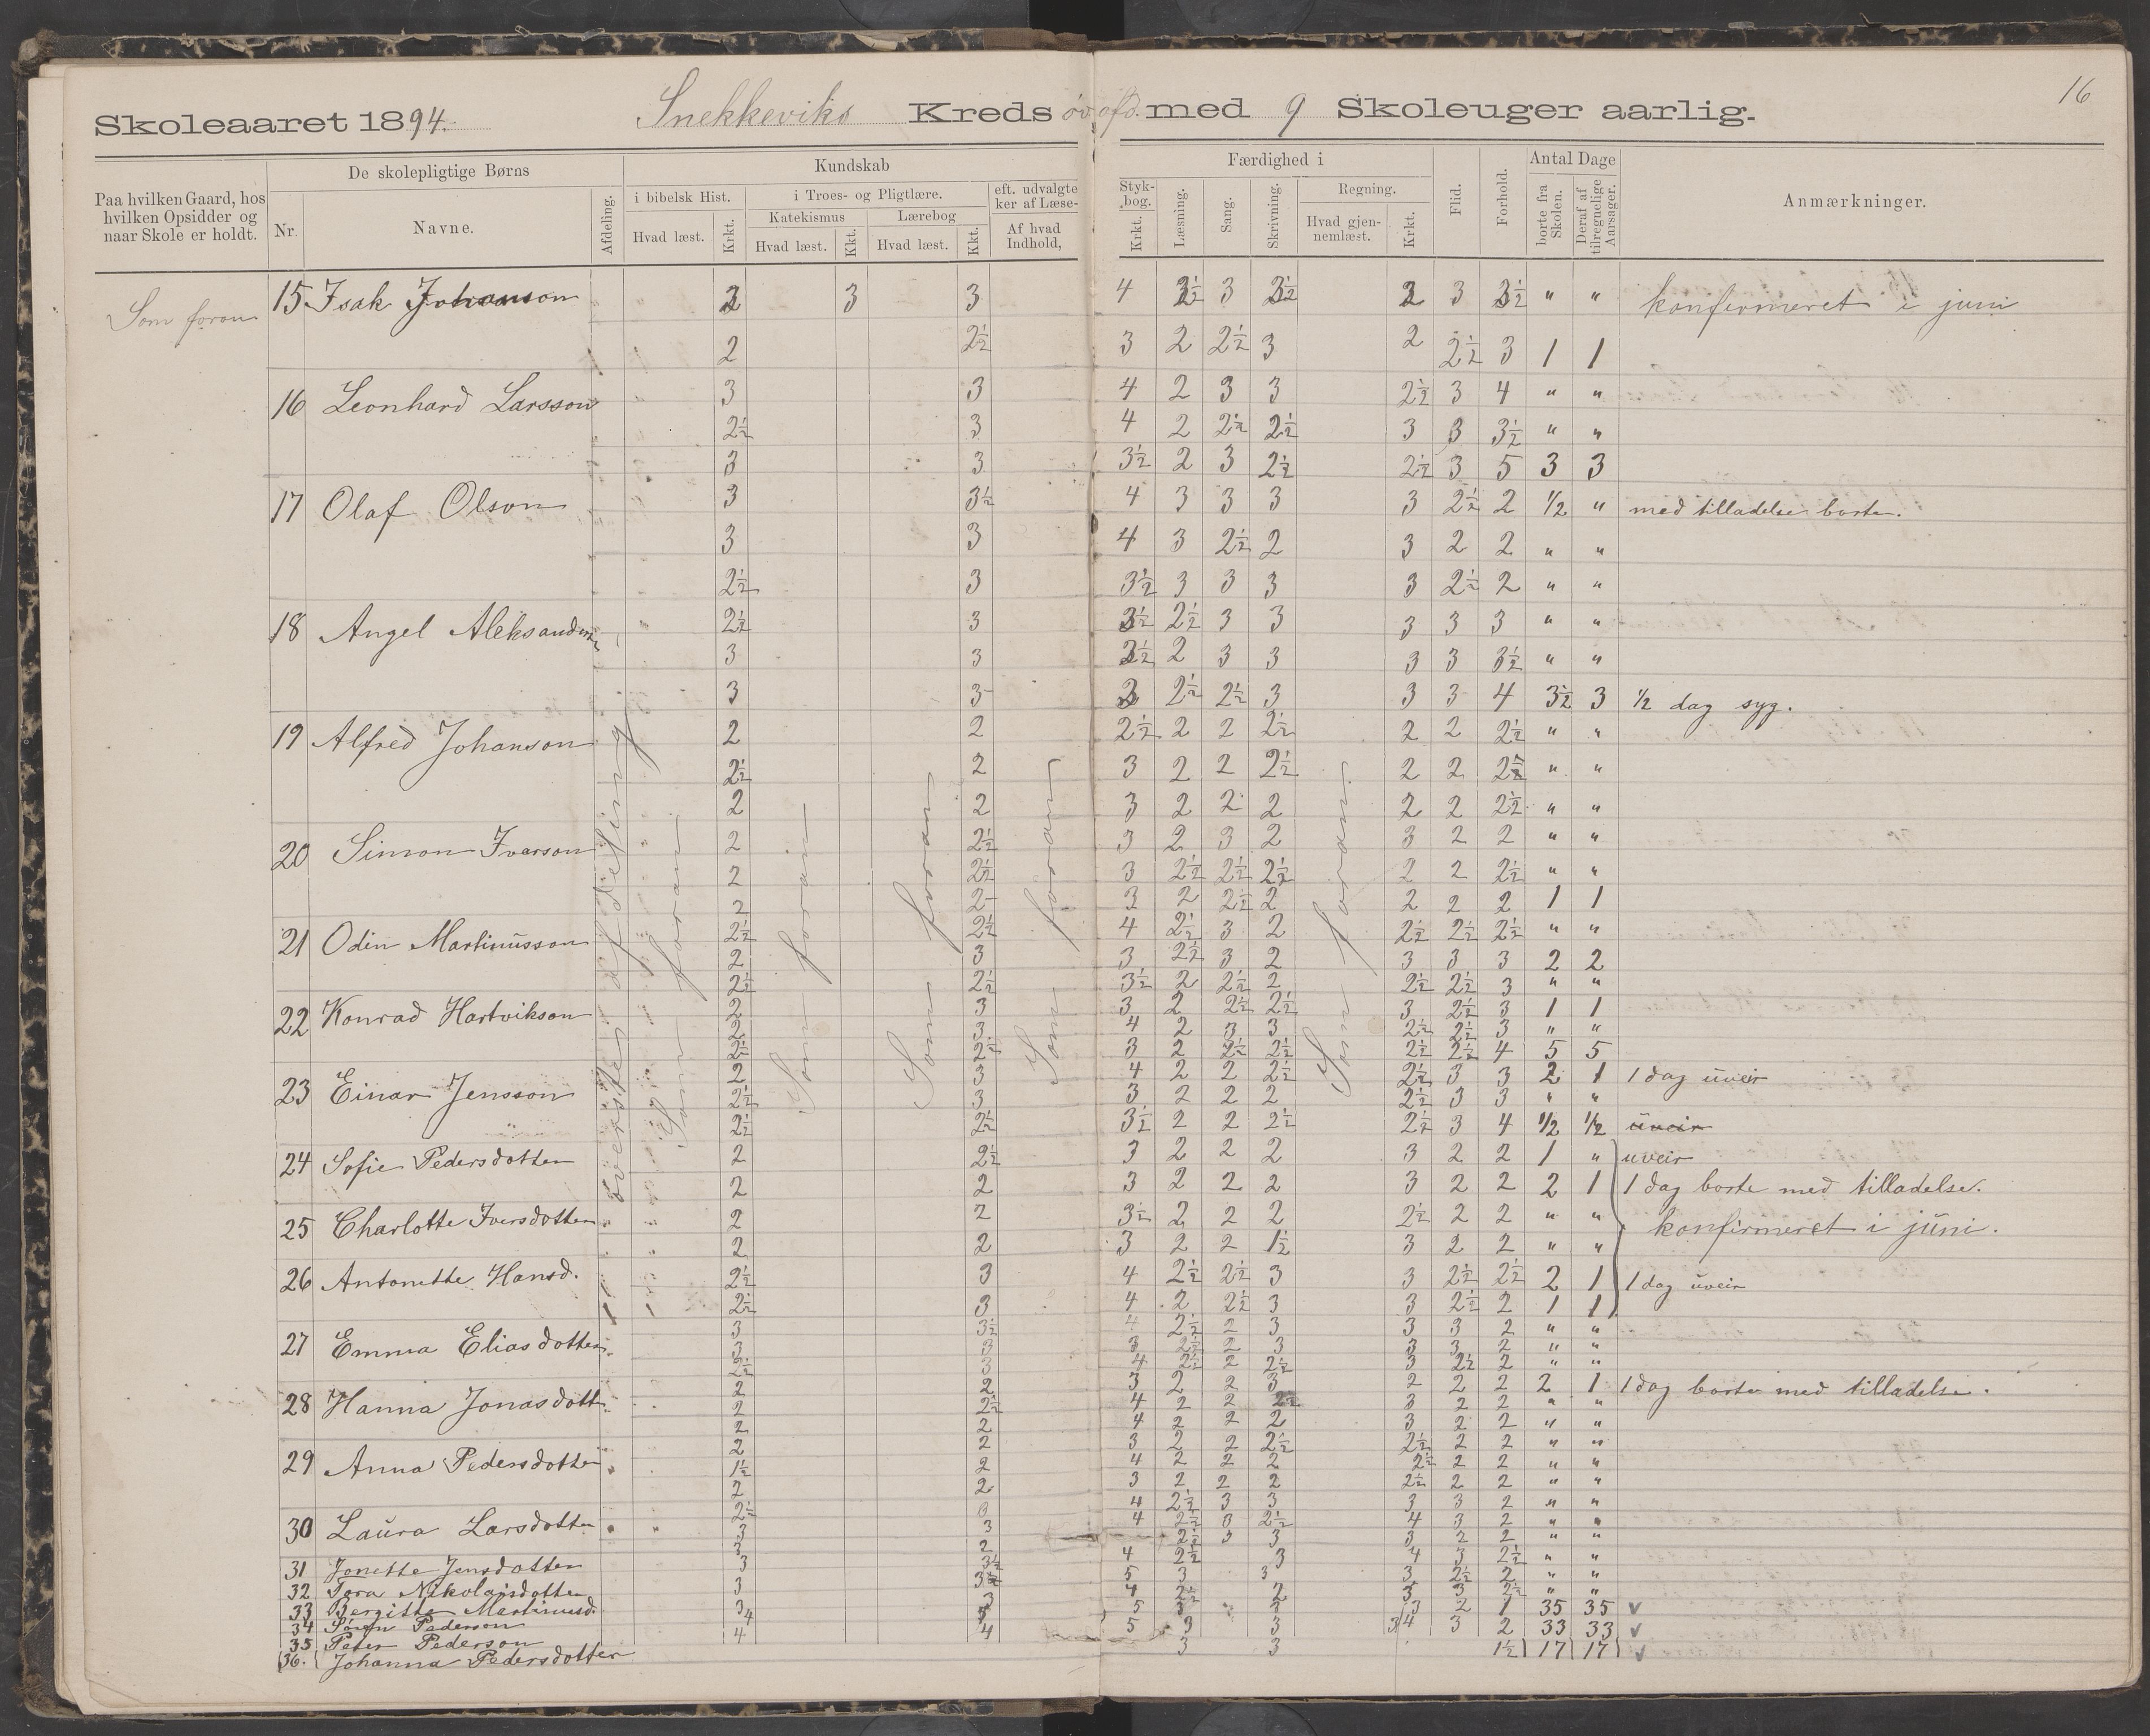 16
Skoleaaret 1894. Snekkeviks Kreds øv. afd. med 9 Skoleuger aarlig.
Paa hvilken Gaard, hos hvilken Opsidder og naar Skole er holdt.
De skolepligtige Børns
Nr.
Navne.
Afdeling.
Kundskab
i bibelsk Hist.
Hvad læst.
Krkt.
i Troes- og Pligtlære.
Katekismus
Hvad læst.
Kkt.
Lærebog
Hvad læst.
Kkt.
eft. udvalgte
ker af Læse-
Af hvad Indhold,
Styk-
bog.
Krkt.
Færdighed i
Læsning.
Sang.
Skrivning.
Regning.
Hvad gjennemlæst.
Krkt.
Flid.
Forhold.
Antal Dage
borte fra Skolen.
Deraf af tilregnelige Aarsager.
Anmærkninger.
Som foran
øverste afdeling
Som foran
Som foran
Som foran
Som foran
Som foran
15 Isak Johanson 2 3 3 4 2½ 3 3½ 2 3 3½ " " konfirmeret i juni
2 2½ 3 2 2½ 3 2 2½ 3 1 1
16 Leonhard Larsson 3 3 4 2 3 3 2½ 3 4 " "
2½ 3 4 2 2½ 2½ 3 3 3½ " "
3 3 3½ 2 3 2½ 2½ 3 5 3 3
17 Olaf Olson 3 3½ 4 3 3 3 3 2½ 2 1/2 " med tilladelse borte.
3 3 4 3 2½ 2 3 2 2 " "
2½ 3 3½ 3 3 3 3 2½ 2 " "
18 Angel Aleksanderson 2½ 3 3½ 2½ 3 3 3 3 3 " "
3 3 3½ 2 3 3 3 3 3½ " "
3 3 3 2½ 2½ 3 3 3 4 3½ 3 1/2 dag syg.
19 Alfred Johanson 2 2 2½ 2 2 2½ 2 2 2½ " "
2½ 2 3 2 2 2½ 2 2 2½ " "
2 2 3 2 2 2 2 2 2½ " "
20 Simon Iverson 2 2½ 3 2 3 2 3 2 2 " "
2 2½ 3 2½ 2½ 2½ 2 2 2½ " "
2 2 3 2 2½ 2 2 2 2 1 1
21 Odin Martinusson 2½ 2½ 4 2½ 3 2 2½ 2½ 2½ " "
2 3 3 2½ 3 2 3 3 3 2 2
2½ 2½ 3½ 2 2½ 2 2½ 2½ 3 " "
22 Konrad Hartvikson 2 3 3 2 2½ 2½ 3 2½ 3 1 1
2 3 4 2 3 3 2½ 2½ 3 " "
2½ 2½ 3 2 2½ 2½ 2½ 2½ 4 5 5
23 Einar Jensson 2 3 4 2 2 2½ 2½ 3 3 2 1 1 dag uveir
2½ 3 3 2 2 2 2½ 3 3 " "
2½ 2½ 3½ 2 2 2½ 2½ 3 4 1/2 1/2 uveir
24 Sofie Pedersdotter 2 2½ 3 2 2 2 3 2 2 1 " uveir
2 2 3 2 2 2 3 2 2 2 1 1 dag borte med tilladelse.
25 Charlotte Iversdotter 2 2 3½ 2 2 2 2½ 2 2 " " konfirmeret i juni.
2 2 3 2 2 1½ 3 2 2 " "
26 Antonette Hansd. 2½ 3 4 2½ 2½ 3 3 2½ 2½ 2 1 1 dag uveir
2½ 3 4 2 2½ 3 3 2½ 2 1 1
27 Emma Eliasdotter 3 3½ 4 2½ 2 3 3 3 2 " "
3 3 3 2½ 2 3 3 3 2 " "
2½ 3 4 2½ 2 2½ 3 2½ 2 " "
28 Hanna Jonasdotter 2 2 3 2 2 3 2 2 2 2 1 1 dag borte med tilladelse.
2 2½ 4 2 2 2½ 3 2 2 " "
2 2 4 2 2 2 3 2 2 " "
29 Anna Pedersdotter 2 2 3 2 2 2½ 2½ 2 2 " "
1½ 2 4 2 2 2 2½ 2 2 " "
2 2 3 2 2 2 2½ 2 2 " "
30 Laura Larsdotter 2½ 3 4 2½ 3 3 3 3 2 " "
3 3 4 2½ 3 2½ 4 3 2 " "
3 2 2½ 3 3 3 2 2 " "
31 Jonette Jensdotter 3 3½ 4 2½ 3 4 3 2½ " "
32 Tora Nikolaisdotter 3 3½ 5 3 3 3 2½ 2 " "
33 Bergitte Martinusd. 3 3 4 2½ 2 3 3 2½ " "
34 Søren Pederson 4 5 3 2 1 35 35 v
35 Peter Pederson 4 4 5 3 3 3/4 3 2 33 33 v
36. Johanna Pedersdotter 3 3 1½ 17 17 v